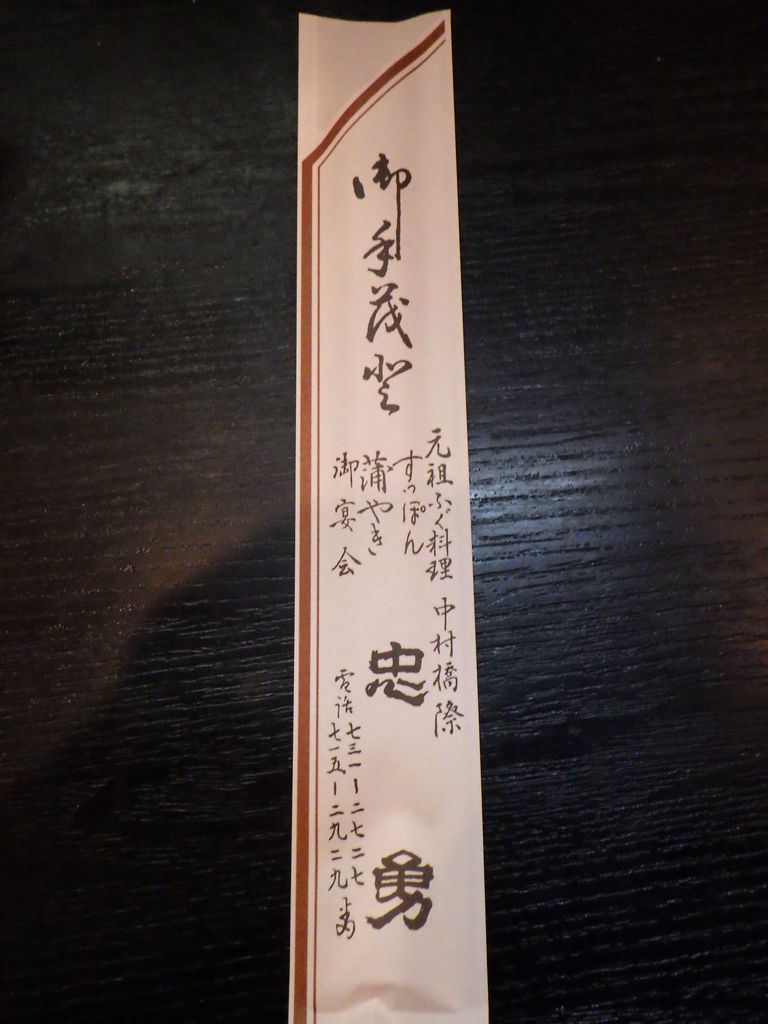 御手茂登
元祖ふく料理 中村橋際
すっぽん
蒲やき
御宴会
忠勇
電話 七三一ー二七二七
七一五ー二九二九